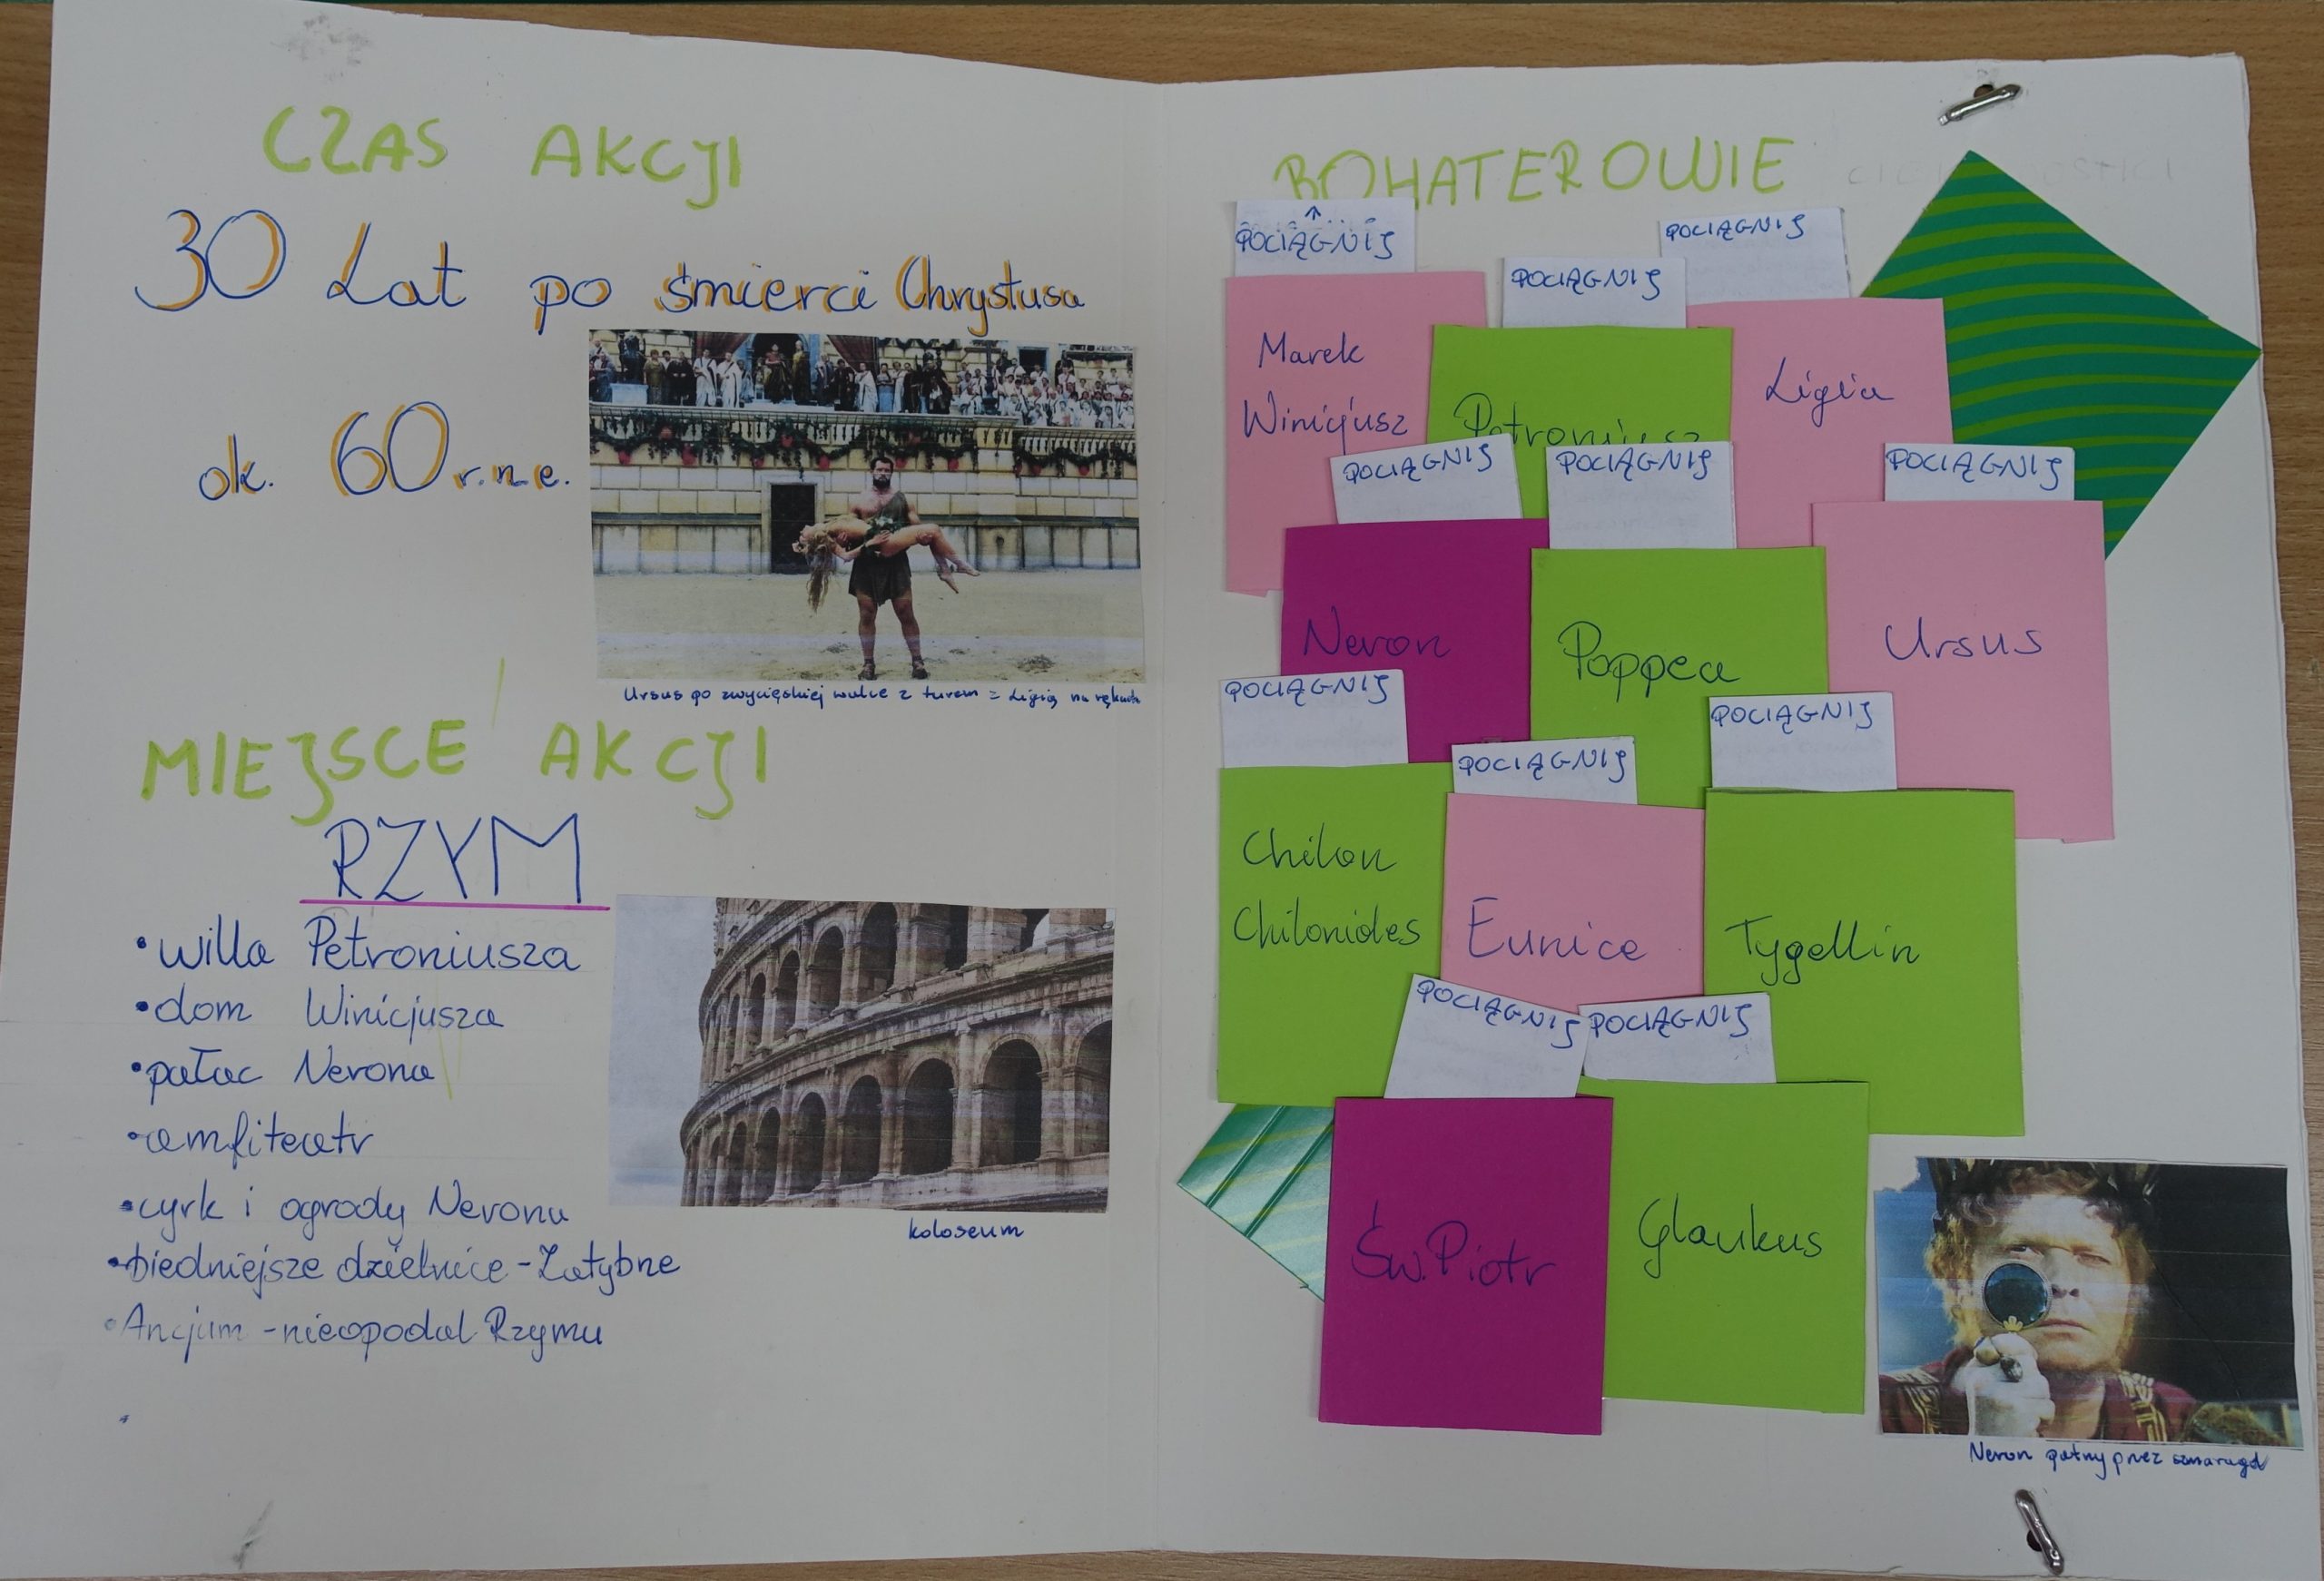 CZAS AKCJI
30 Lat po śmierci Chrystusa
ok. 60 r.n.e.
Ursus po zwycięskiej walce z turem z Ligią na rękach
MIEJSCE AKCJI
RZYM
• willa Petroniusza
• dom Winicjusza
• pałac Nerona
• amfiteatr
• cyrk i ogrody Nerona
• biedniejsze dzielnice - Zatybrze
• Ancjum - nieopodal Rzymu
koloseum
BOHATEROWIE
POCIĄGNIJ
Marek
Winicjusz
POCIĄGNIJ
Petroniusz
POCIĄGNIJ
Ligia
POCIĄGNIJ
Neron
POCIĄGNIJ
Poppea
POCIĄGNIJ
Ursus
POCIĄGNIJ
Chilon
Chilonides
POCIĄGNIJ
Eunice
POCIĄGNIJ
Tygellin
POCIĄGNIJ
Św. Piotr
POCIĄGNIJ
Glaukus
Neron patrzy przez szmaragd